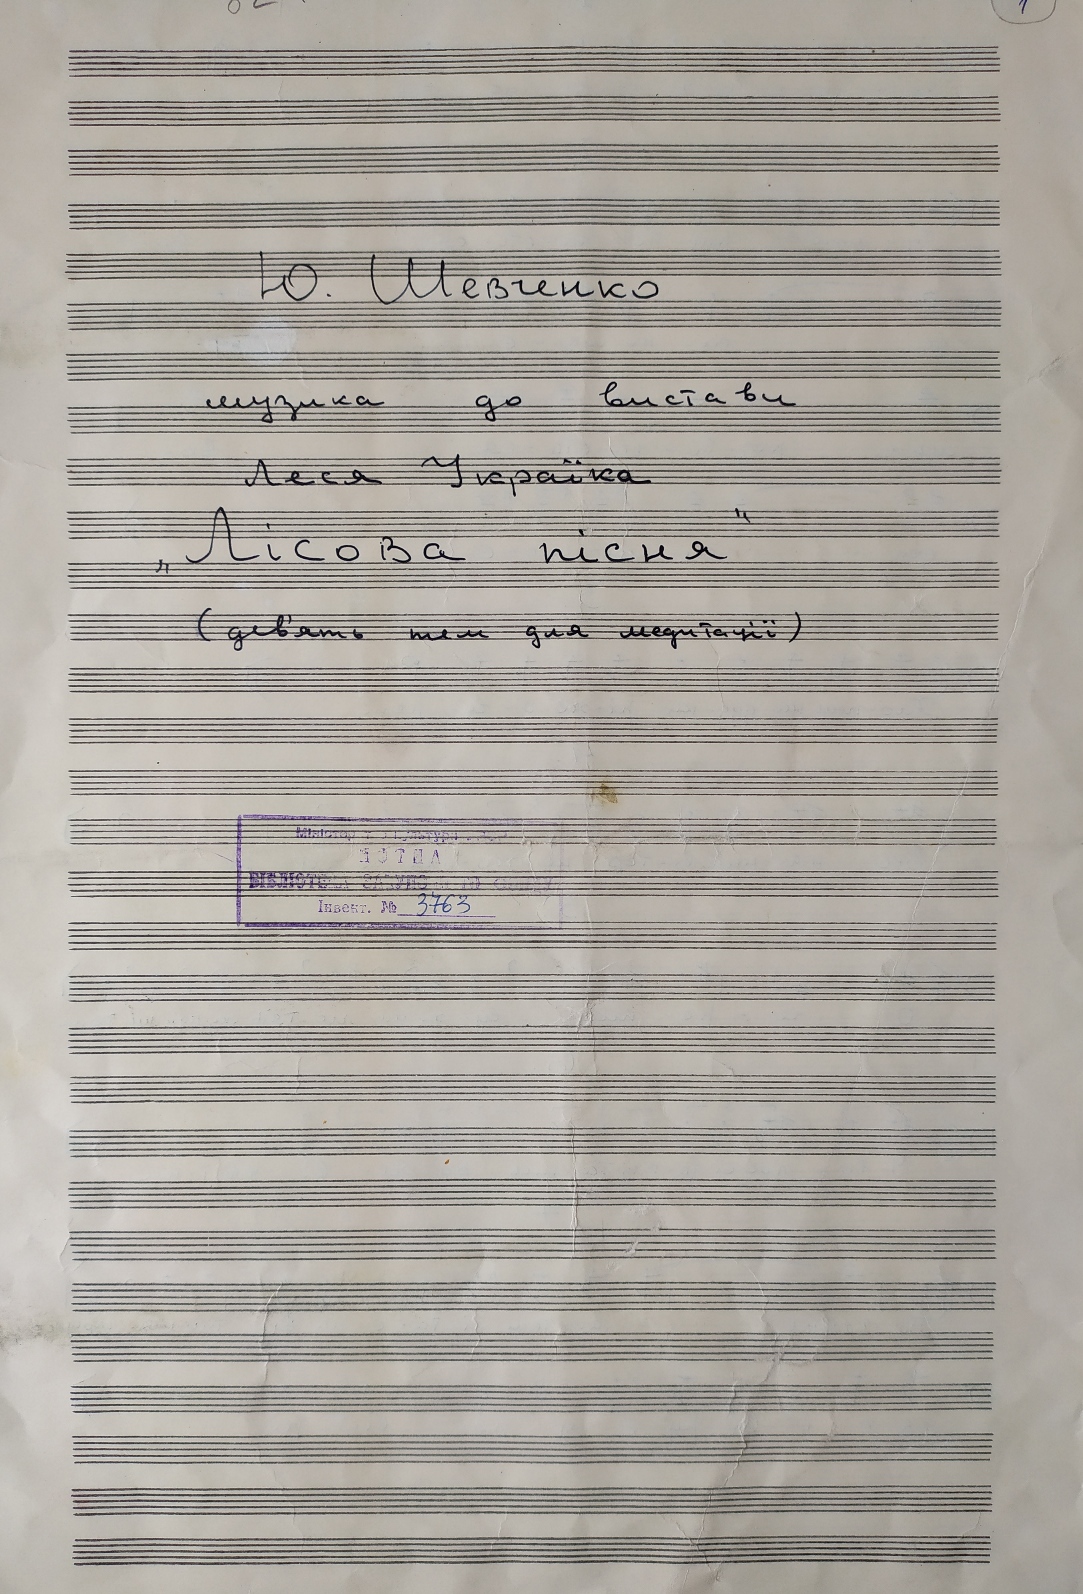 1
Ю. Шевченко
музика до вистави
Леся Українка
„Лісова пісня"
(дев'ять тем для медитації)
Інвент. № 3763